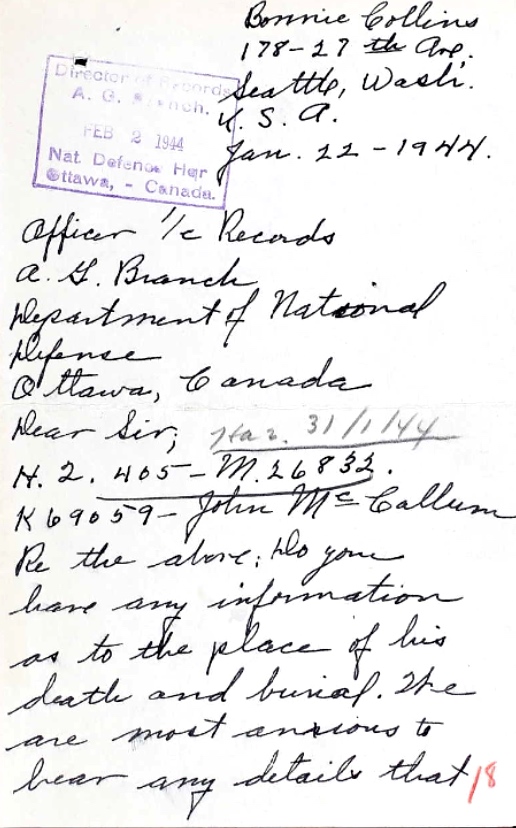 Bonnie Collins
178-27 th Ave.
Seattle, Wash.
U. S. A.
Jan. 22 - 1944.
Director of Records
A. G. Branch.
FEB 2 1944
Nat. Defence Hqr
Ottawa, - Canada.
Officer i/c Records
A. G. Branch
Department of National
Defense
Ottawa, Canada
Dear Sir; 31/1/44
H. Q. 405 - M. 26832.
K 69059 - John McCallum
Re the above; Do you
have any information
as to the place of his
death and burial. We
are most anxious to
hear any details that 18